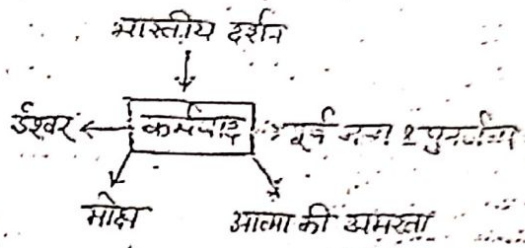 भारतीय दर्शन
ईश्वर ← कर्मवाद → पूर्व जन्म व पुनर्जन्म
मोक्ष आत्मा की अमरता